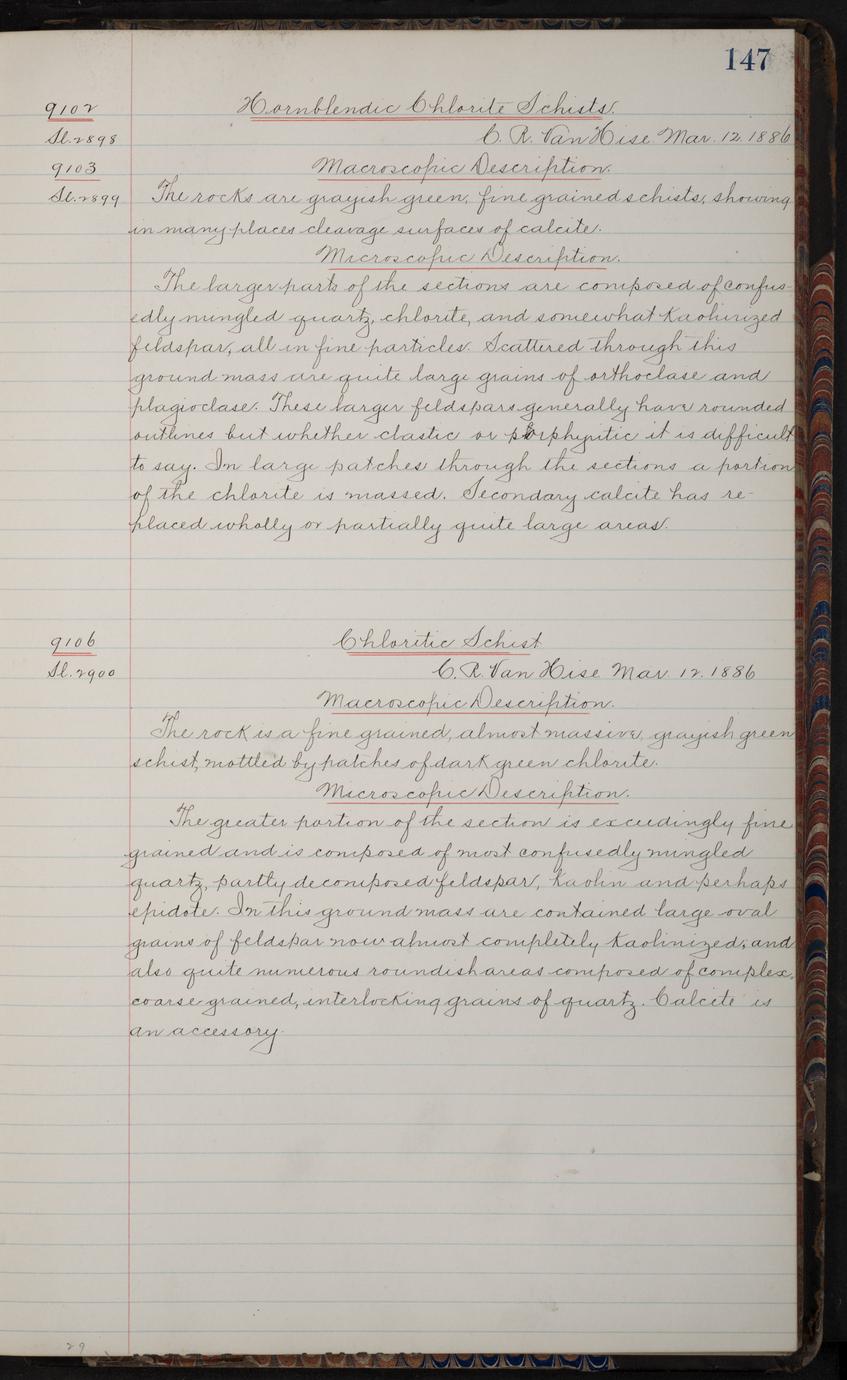 147
9102 Hornblendic Chlorite Schists.
Sl. 2898 C. R. Van Hise Mar. 12. 1886
9103 Macroscopic Description.
Sl. 2899 The rocks are grayish green, fine grained schists, showing
in many places cleavage surfaces of calcite.
Microscopic Description.
The larger parts of the sections are composed of confus-
edly mingled quartz, chlorite, and somewhat Kaolinized
feldspar, all in fine particles. Scattered through this
ground mass are quite large grains of orthoclase and
plagioclase. These larger feldspars generally have rounded
outlines but whether clastic or porphyritic it is difficult
to say. In large patches through the sections a portion
of the chlorite is massed. Secondary calcite has re-
placed wholly or partially quite large areas.
9106 Chloritic Schist
Sl. 2900 C. R. Van Hise Mar. 12. 1886
Macroscopic Description.
The rock is a fine grained, almost massive, grayish green
schist, mottled by patches of dark green chlorite.
Microscopic Description.
The greater portion of the section is exceedingly fine
grained and is composed of most confusedly mingled
quartz, partly decomposed feldspar, Kaolin and perhaps
epidote. In this ground mass are contained large oval
grains of feldspar now almost completely Kaolinized, and
also quite numerous roundish areas composed of complex,
coarse grained, interlocking grains of quartz. Calcite is
an accessory.
29